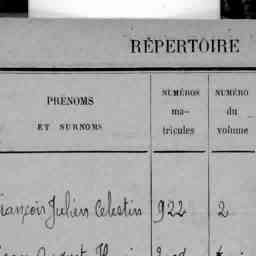 RÉPERTOIRE
PRÉNOMS
ET SURNOMS
NUMÉROS
ma-
tricules
NUMÉRO
du
volume
François Julien Célestin 922 2